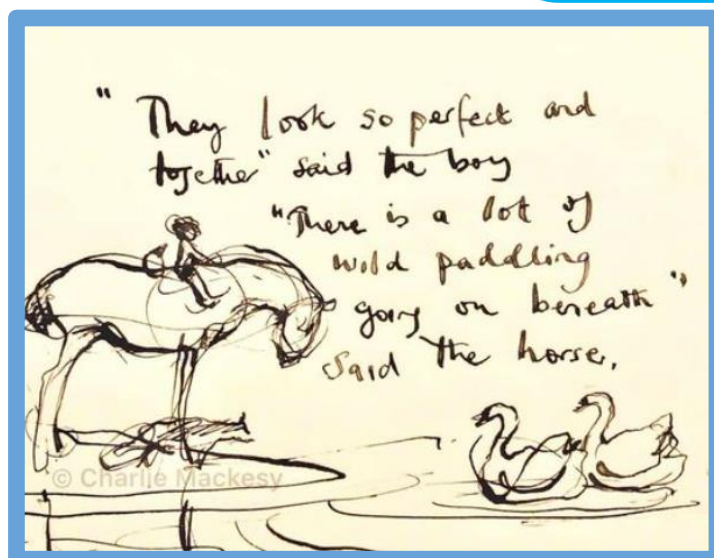 " They look so perfect and
together" said the boy
"There is a lot of
wild paddling
going on beneath"
said the horse.
© Charlie Mackesy